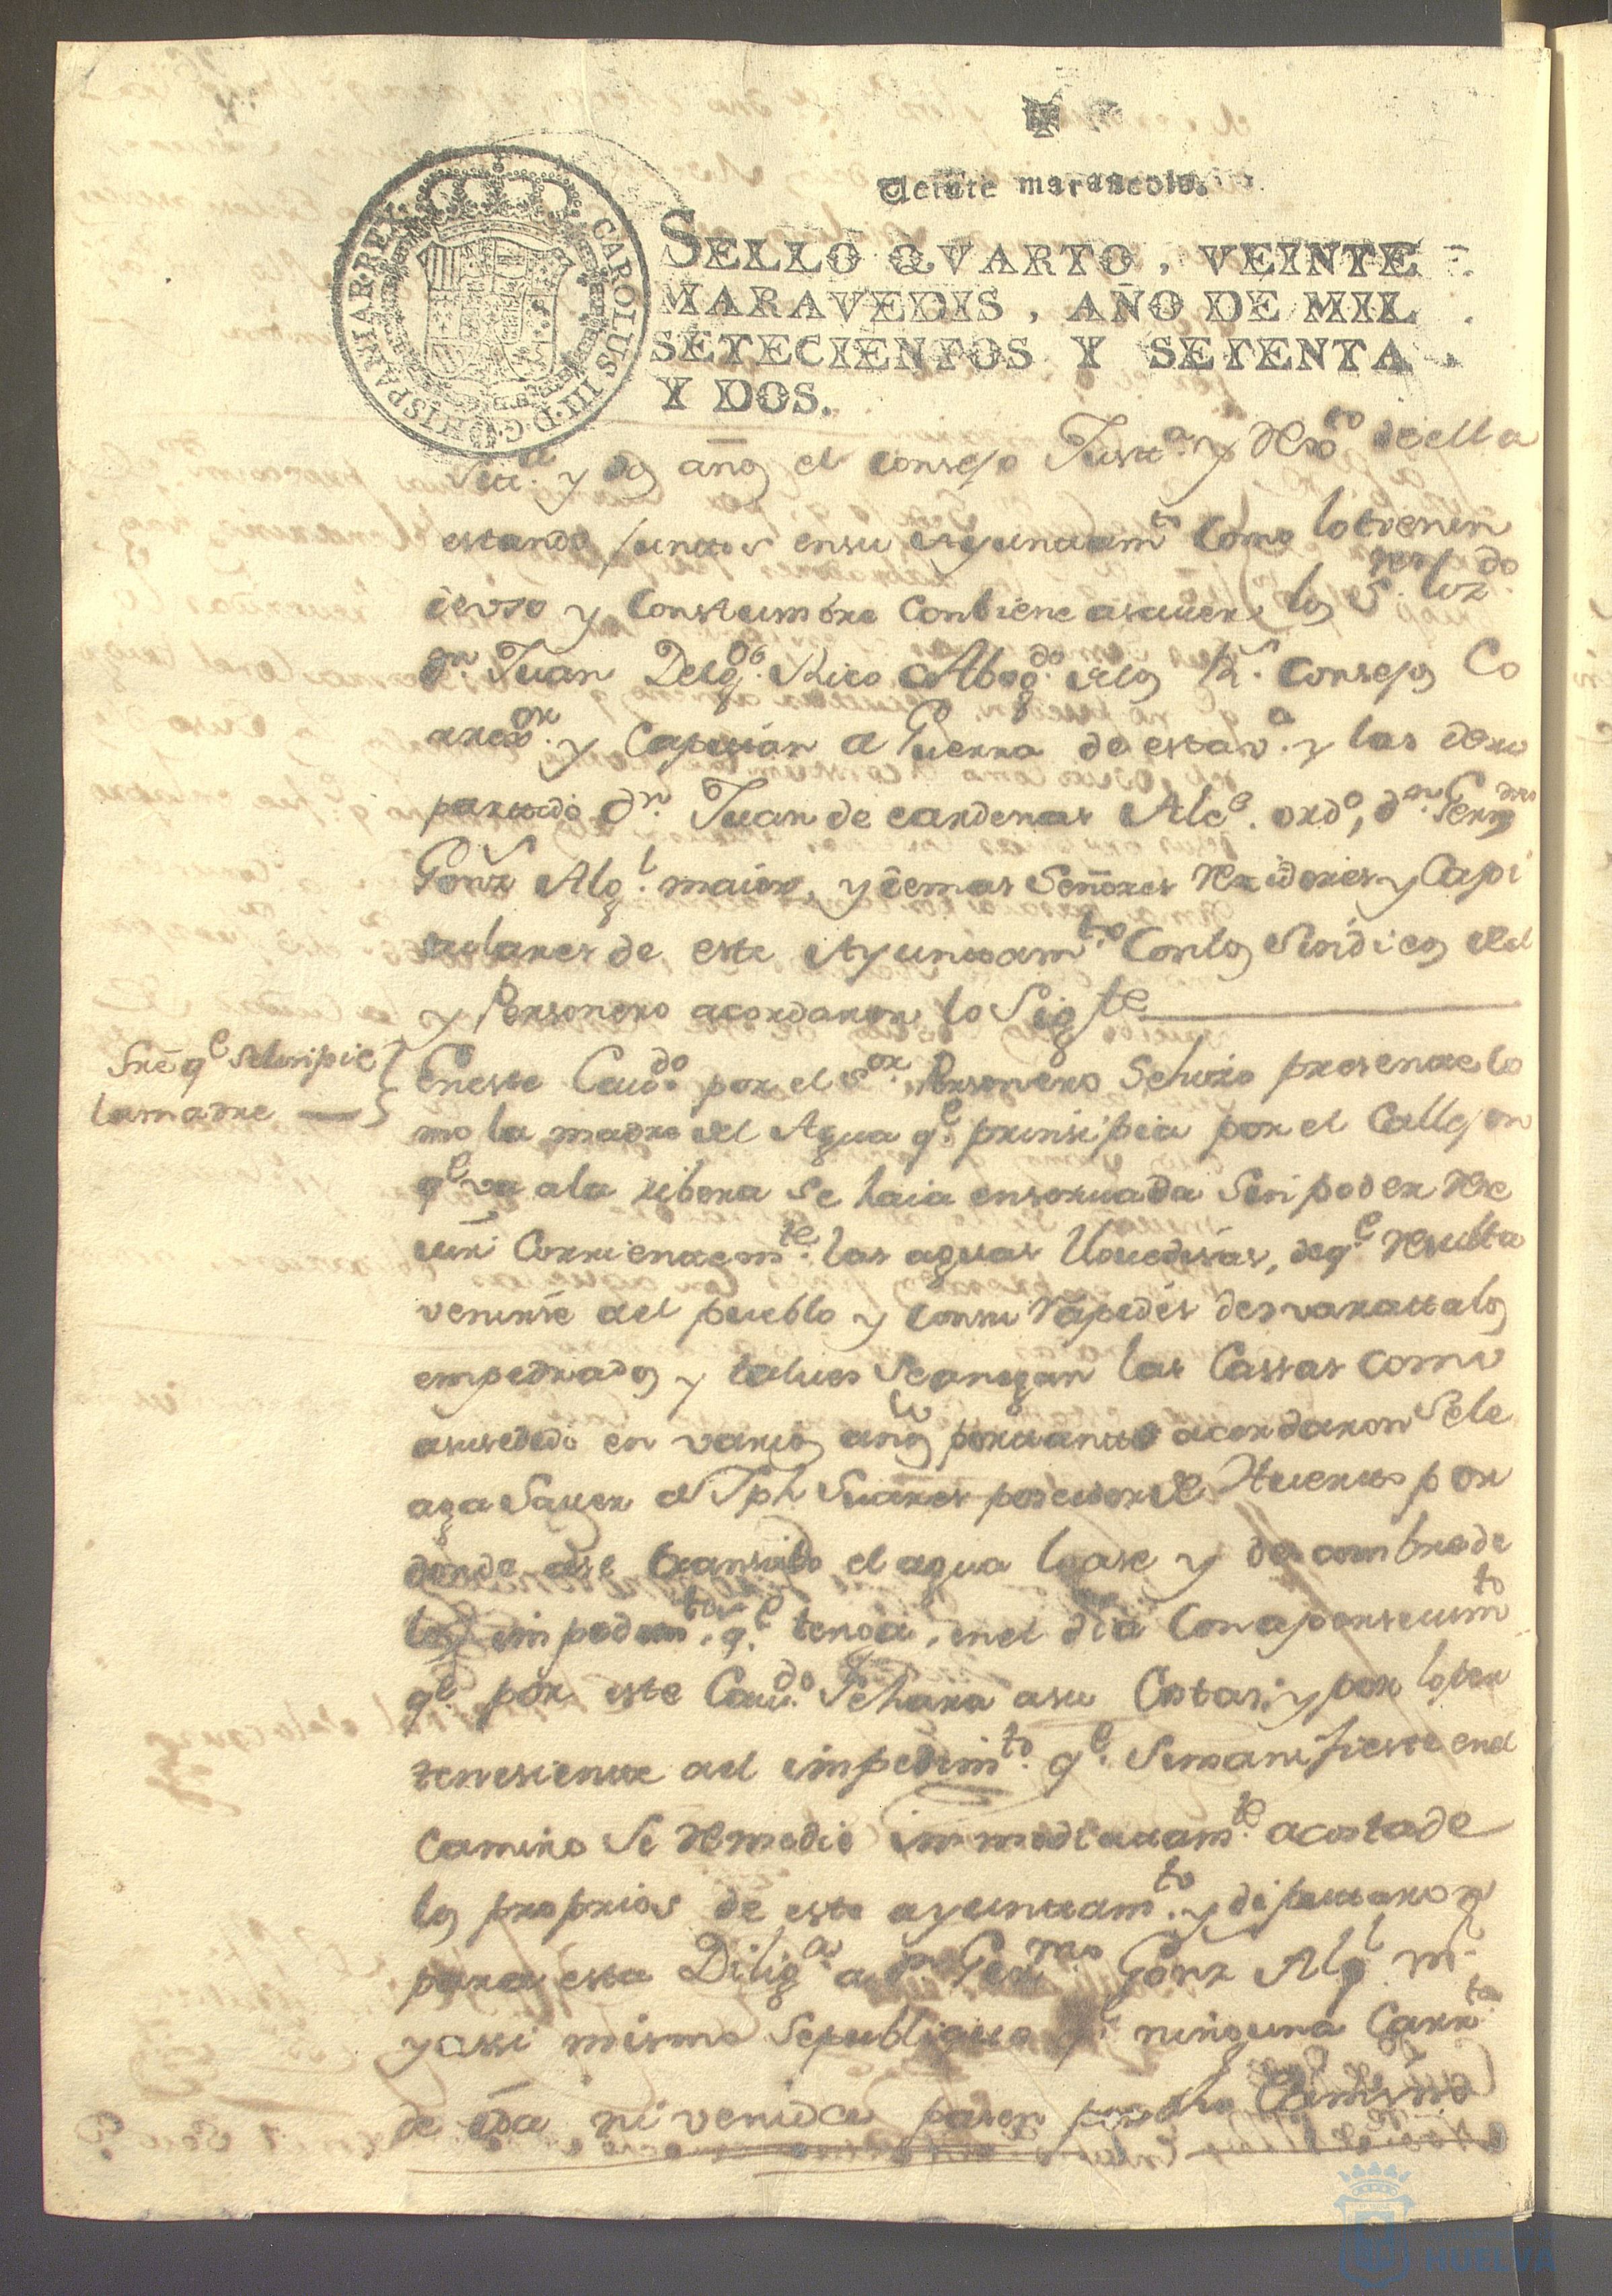 Veinte maravedis.
SELLO QVARTO, VEINTE
MARAVEDIS, AÑO DE MIL
SETECIENTOS Y SETENTA
Y DOS.
CAROLUS III D.G. HISPANIAR REX
Sett.ta y dos años el consejo Just.a y Rexto de ella
estando juntos en su Ayuntam.to Como lo tienen
de uso y Constumbre Conbiene asauer los S.res Lizdo
Dn. Juan Delg.do Rico Abog.do de los Rs. Consejos Co
rrex.or y Capitan a Guerra de esta v.a y las de su
partido Dn. Juan de Cardenas Alce. ordo, Dn. Germo
Gonz Alg.l maior, y demas Señores Rexidores y Capi
tulares de este Ayuntam.to Con los Sindico del
y Personero acordaron lo Sigte
Sre qe se limpie
la madre
En este Cau.do por el S.or Personero Se hizo presente Co
mo la madre del Agua q.e prinsipia por el Callejon
q.e va a la ribera Se haia ensoruada Sin poder Re
siuir Corrientem.te las aguas llouedisas, de q.e Resulta
venirse al pueblo y Con su rapides desvarata los
empedrados y talues Se anegan las Cassas como
a susedido en varios años por tanto acordaron Se le
aga Sauer a Jph Suares poseedor de Huerto por
donde ase transito el agua la ase y descombre de
los impedim.tos q.e tenga, en el dia Con aperseuim.to
q.e por este Cau.do Se hara a su Costa; y por lo per
tenesiente al impedim.to q.e Se manifieste en el
Camino Se Remedie immediatam.te a costa de
los proprios de este ayuntam.to y diputaron
para esta Dilig.a a Dn Germo Gonz Alg.l m.r
y assi mismo Se publique q.e ninguna Carr.ta
de ida ni venida pasen por dho Camino
HUELVA